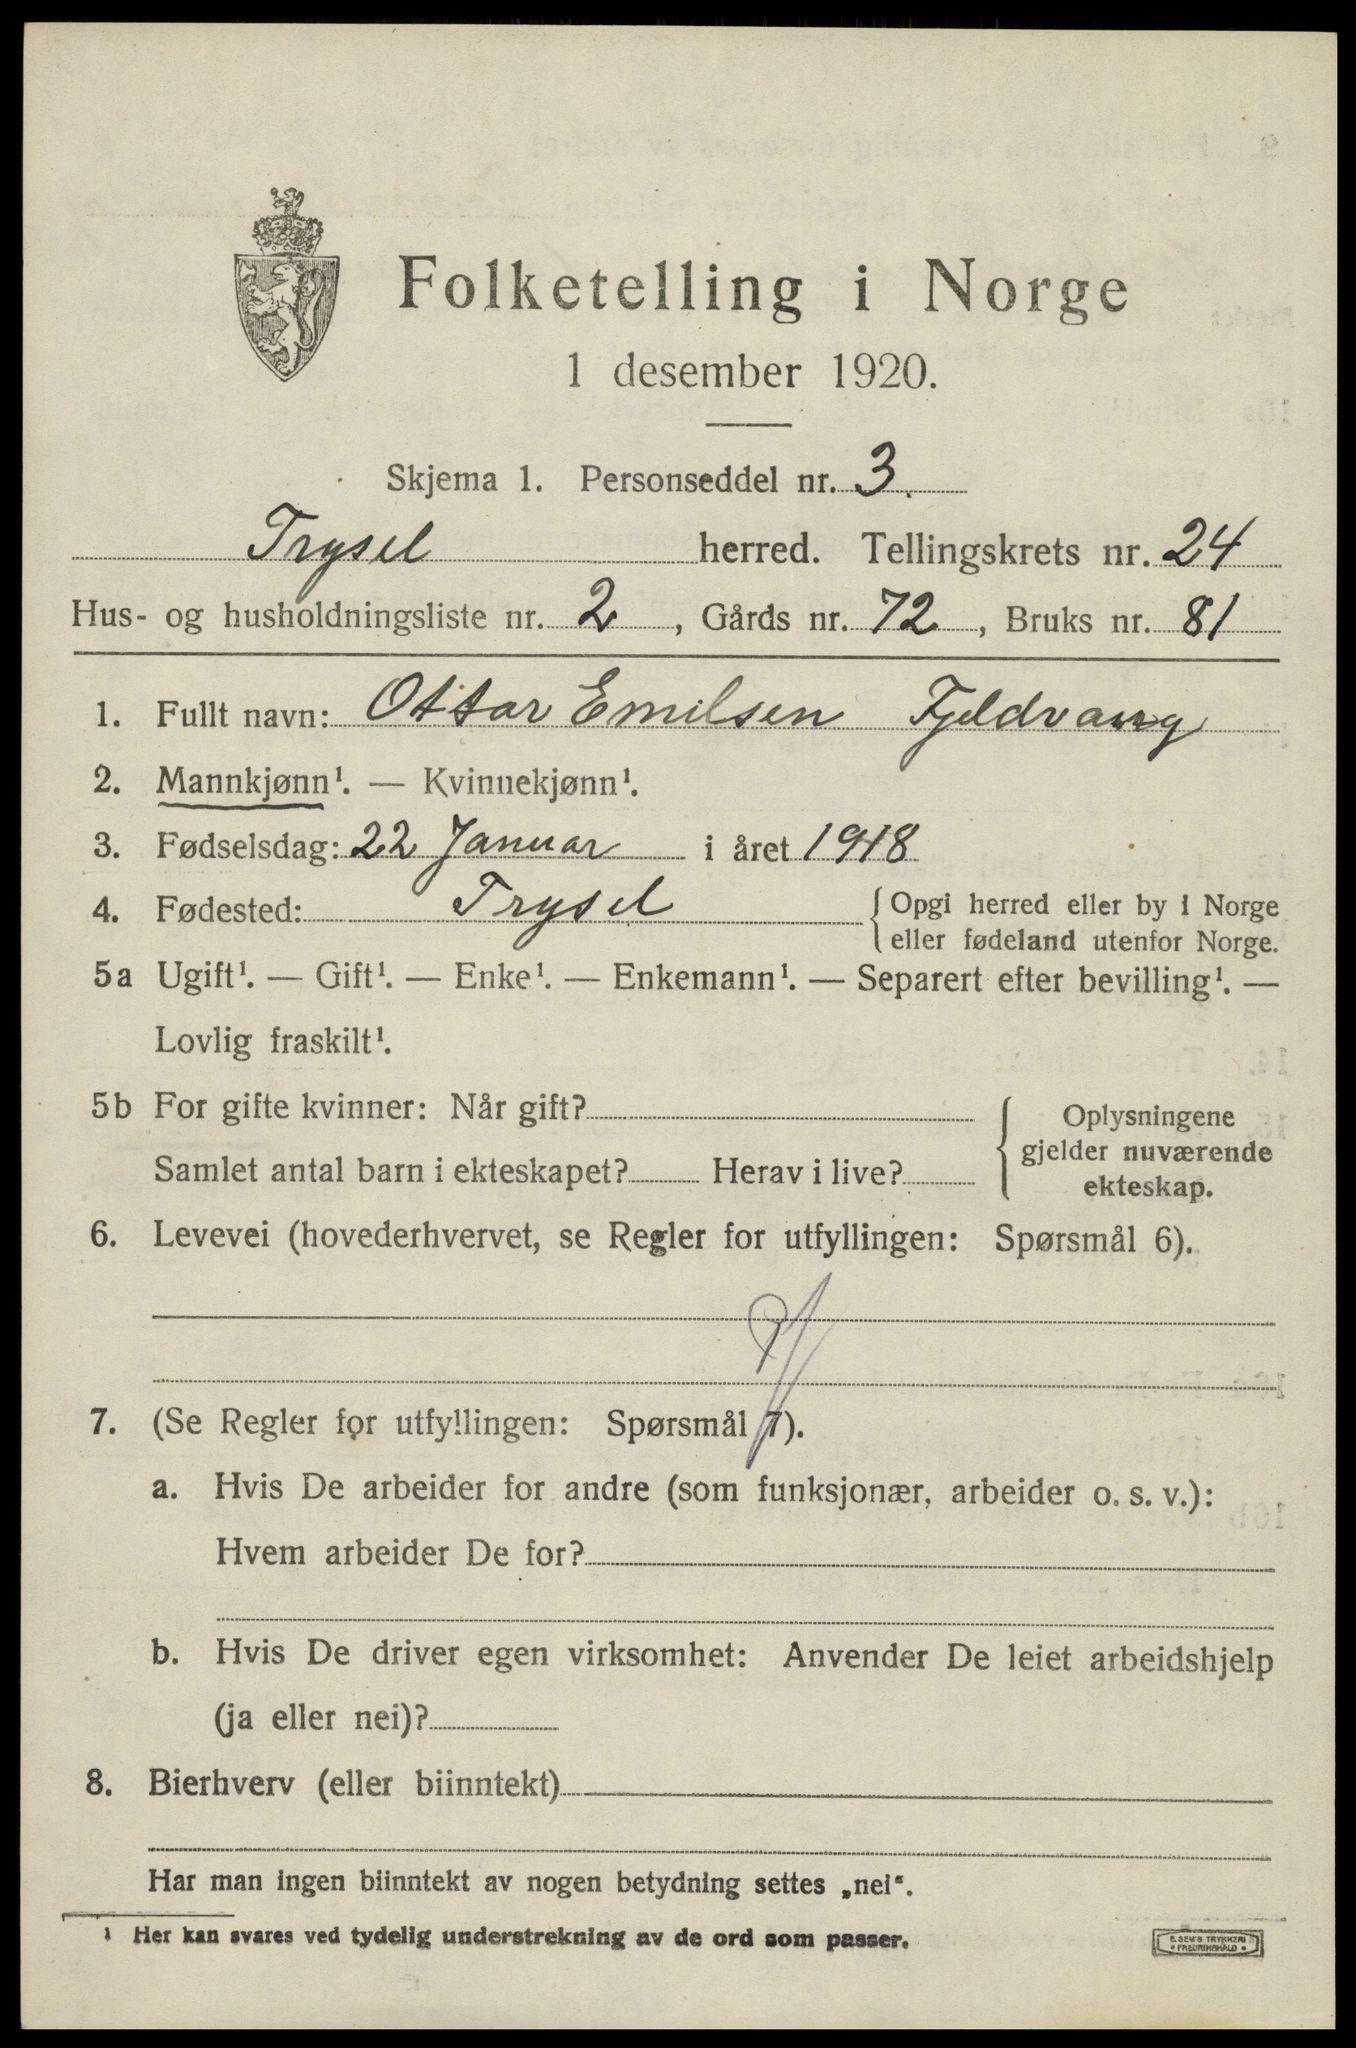 Folketelling i Norge
1 desember 1920.
Skjema 1. Personseddel nr. 3.
Trysil herred. Tellingskrets nr. 24
Hus- og husholdningsliste nr. 2, Gårds nr. 72, Bruks nr. 81
1. Fullt navn: Ottar Emilsen Fjeldvang
2. Mannkjønn¹. — Kvinnekjønn¹.
3. Fødselsdag: 22 Januar i året 1918
4. Fødested: Trysil { Opgi herred eller by i Norge
eller fødeland utenfor Norge.
5a Ugift¹. — Gift¹. — Enke¹. — Enkemann¹. — Separert efter bevilling¹. —
Lovlig fraskilt¹.
5b For gifte kvinner: Når gift?
Samlet antal barn i ekteskapet? Herav i live?
Oplysningene
gjelder nuværende
ekteskap.
6. Levevei (hovederhvervet, se Regler for utfyllingen: Spørsmål 6).
7. (Se Regler for utfyllingen: Spørsmål 7).
a. Hvis De arbeider for andre (som funksjonær, arbeider o. s. v.):
Hvem arbeider De for?
b. Hvis De driver egen virksomhet: Anvender De leiet arbeidshjelp
(ja eller nei)?
8. Bierhverv (eller biinntekt)
Har man ingen biinntekt av nogen betydning settes „nei“.
¹ Her kan svares ved tydelig understrekning av de ord som passer.
E. SEM'S TRYKKERI
FREDRIKSHALD